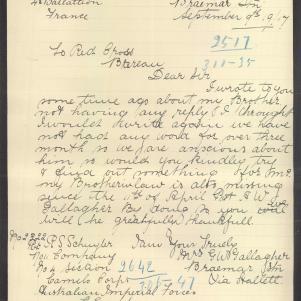 Battallion Braemar Stn
France September 9th 917
2517
To Red Cross 311-35
Bereau
Dear Sir
I wrote to you
some time ago about my Brother
not having any reply I thought
I would write again we have
not had any word for over three
month so we are anscious about
him so would you kindley try
& find out something for me
my Brotherinlaw is also missing
since the 11th of April Pt F W
Gallagher By doing so you
will be greatfully thankfull
R S Schuyler I am Yours Truely
No 11 Company Mrs P W Gallagher
No 4 Section 2642 Braemar Stn
Camels Corps 30/5-47 Via Hallett
Australian Imperial Forces